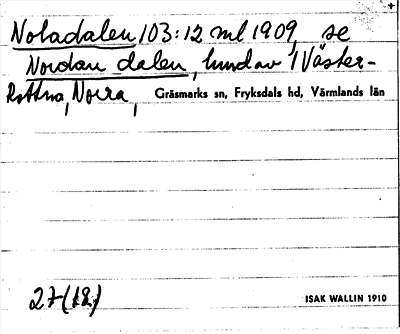 Noladalen, 103:12 ml 1909, se
Nordan dalen, hmd av 1/ Väster-
Rottna, Norra, Gräsmarks sn, Fryksdals hd, Värmlands län
27 (12)
ISAK WALLIN 1910